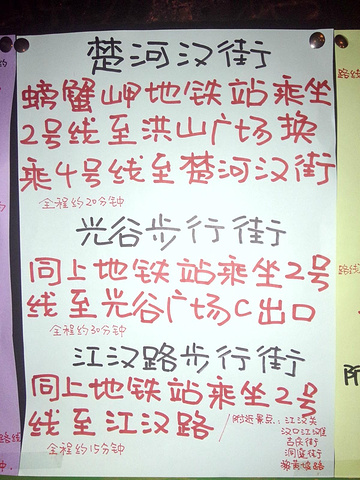 楚河汉街
螃蟹岬地铁站乘坐
2号线至洪山广场换
乘4号线至楚河汉街
全程约20分钟
光谷步行街
同上地铁站乘坐2号
线至光谷广场C出口
全程约30分钟
江汉路步行街
同上地铁站乘坐2号
线至江汉路
全程约15分钟
附近景点:江汉关
汉口江滩
吉庆街
洞庭街
黎黄陂路
路线
路线
所